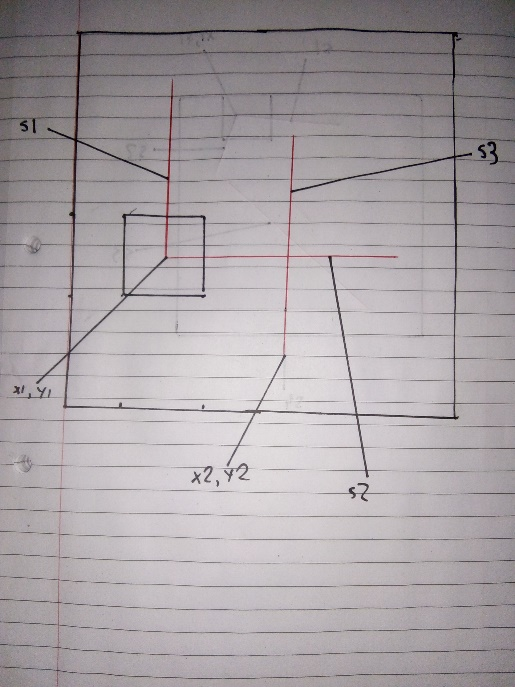 s1
s3
x1, y1
x2, y2
s2